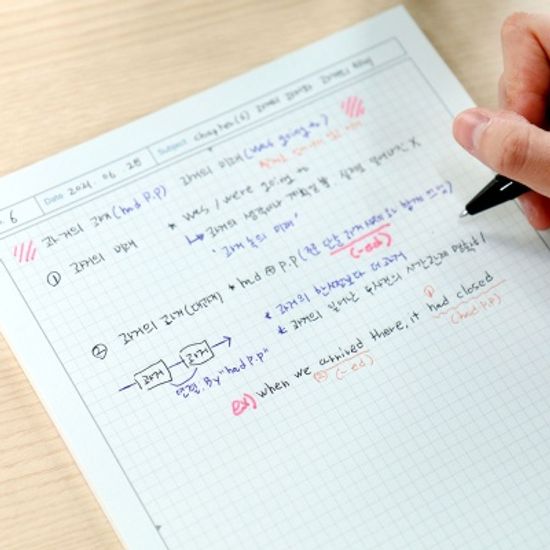 . 6 Date 2021. 06. 28 Subject Chapter(6) 과거의 과거와 과거의
과거의 과거(had p.p) 과거의 미래(was going to)
① 과거의 미래 * was / were going to
↳ 과거의 X
'과거 속의 미래'
② 과거의 과거(대과거) * had ⊕ p.p (
(-ed)
* 과거의 한시점보다 대과거
* 과거의 일어난 두사건의 시간관계 명확히!
과거 과거
연결. By "had p.p"
ex) when we arrived there, it had closed
② (-ed) ① (had p.p)